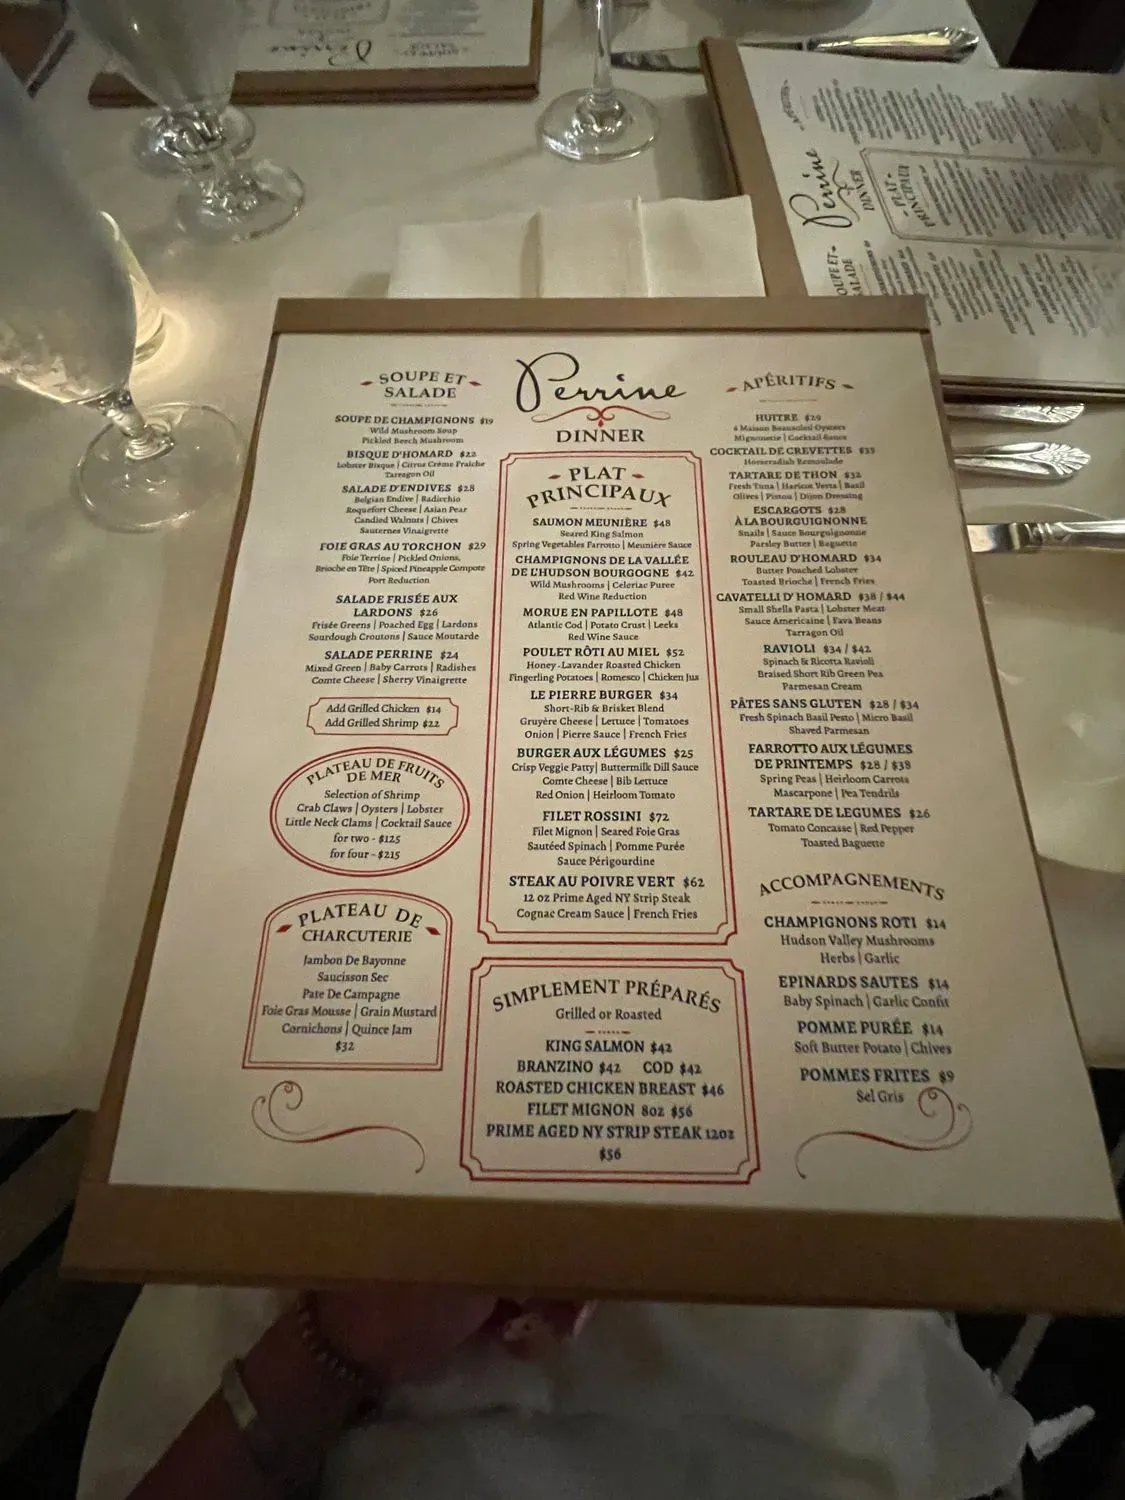 Perrine
DINNER
SOUPE ET
SALADE
SOUPE DE CHAMPIGNONS $19
Wild Mushroom Soup
Pickled Beech Mushroom
BISQUE D'HOMARD $22
Lobster Bisque | Citrus Crème Fraiche
Tarragon Oil
SALADE D'ENDIVES $28
Belgian Endive | Radicchio
Roquefort Cheese | Asian Pear
Candied Walnuts | Chives
Sauternes Vinaigrette
FOIE GRAS AU TORCHON $29
Foie Terrine | Pickled Onions,
Brioche en Tête | Spiced Pineapple Compote
Port Reduction
SALADE FRISÉE AUX
LARDONS $26
Frisée Greens | Poached Egg | Lardons
Sourdough Croutons | Sauce Moutarde
SALADE PERRINE $24
Mixed Green | Baby Carrots | Radishes
Comte Cheese | Sherry Vinaigrette
Add Grilled Chicken $14
Add Grilled Shrimp $22
PLATEAU DE FRUITS
DE MER
Selection of Shrimp
Crab Claws | Oysters | Lobster
Little Neck Clams | Cocktail Sauce
for two - $125
for four - $215
PLATEAU DE
CHARCUTERIE
Jambon De Bayonne
Saucisson Sec
Pate De Campagne
Foie Gras Mousse | Grain Mustard
Cornichons | Quince Jam
$32
PLAT
PRINCIPAUX
SAUMON MEUNIÈRE $48
Seared King Salmon
Spring Vegetables Farrotto | Meunière Sauce
CHAMPIGNONS DE LA VALLÉE
DE L'HUDSON BOURGOGNE $42
Wild Mushrooms | Celeriac Puree
Red Wine Reduction
MORUE EN PAPILLOTE $48
Atlantic Cod | Potato Crust | Leeks
Red Wine Sauce
POULET RÔTI AU MIEL $52
Honey-Lavander Roasted Chicken
Fingerling Potatoes | Romesco | Chicken Jus
LE PIERRE BURGER $34
Short-Rib & Brisket Blend
Gruyère Cheese | Lettuce | Tomatoes
Onion | Pierre Sauce | French Fries
BURGER AUX LÉGUMES $25
Crisp Veggie Patty| Buttermilk Dill Sauce
Comte Cheese | Bib Lettuce
Red Onion | Heirloom Tomato
FILET ROSSINI $72
Filet Mignon | Seared Foie Gras
Sautéed Spinach | Pomme Purée
Sauce Périgourdine
STEAK AU POIVRE VERT $62
12 oz Prime Aged NY Strip Steak
Cognac Cream Sauce | French Fries
SIMPLEMENT PRÉPARÉS
Grilled or Roasted
KING SALMON $42
BRANZINO $42 COD $42
ROASTED CHICKEN BREAST $46
FILET MIGNON 8oz $56
PRIME AGED NY STRIP STEAK 12oz
$56
APÉRITIFS
HUITRE $29
6 Maison Beausoleil Oysters
Mignonette | Cocktail Sauce
COCKTAIL DE CREVETTES $35
Horseradish Remoulade
TARTARE DE THON $32
Fresh Tuna | Haricot Verts | Basil
Olives | Pistou | Dijon Dressing
ESCARGOTS $28
À LA BOURGUIGNONNE
Snails | Sauce Bourguignonne
Parsley Butter | Baguette
ROULEAU D'HOMARD $34
Butter Poached Lobster
Toasted Brioche | French Fries
CAVATELLI D'HOMARD $38 / $44
Small Shells Pasta | Lobster Meat
Sauce Americaine | Fava Beans
Tarragon Oil
RAVIOLI $34 / $42
Spinach & Ricotta Ravioli
Braised Short Rib Green Pea
Parmesan Cream
PÂTES SANS GLUTEN $28 / $34
Fresh Spinach Basil Pesto | Micro Basil
Shaved Parmesan
FARROTTO AUX LÉGUMES
DE PRINTEMPS $28 / $38
Spring Peas | Heirloom Carrots
Mascarpone | Pea Tendrils
TARTARE DE LEGUMES $26
Tomato Concasse | Red Pepper
Toasted Baguette
ACCOMPAGNEMENTS
CHAMPIGNONS ROTI $14
Hudson Valley Mushrooms
Herbs | Garlic
EPINARDS SAUTES $14
Baby Spinach | Garlic Confit
POMME PURÉE $14
Soft Butter Potato | Chives
POMMES FRITES $9
Sel Gris
Perrine
Perrine
DINNER
PLAT
PRINCIPAUX